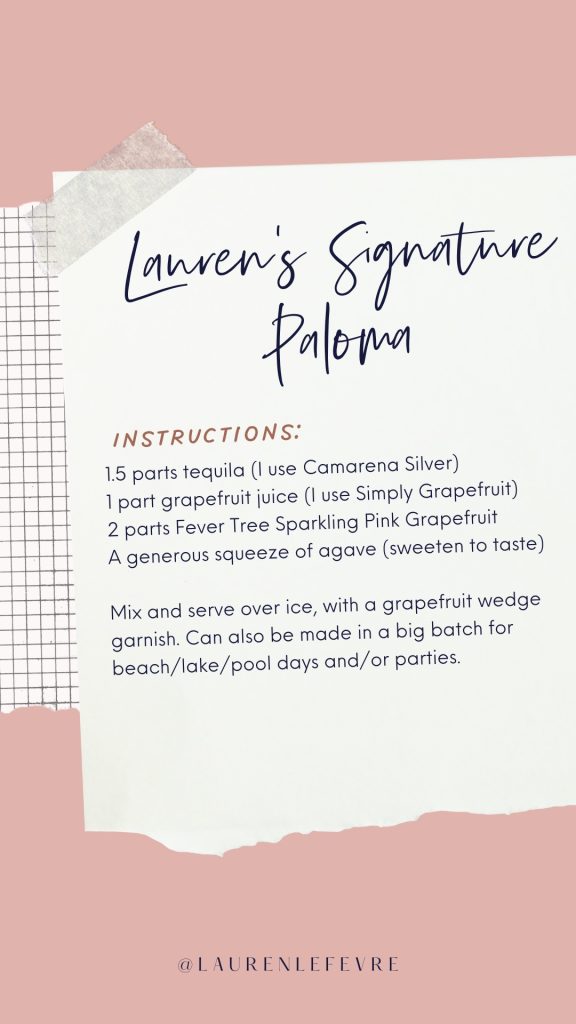 Lauren's Signature
Paloma
INSTRUCTIONS:
1.5 parts tequila (I use Camarena Silver)
1 part grapefruit juice (I use Simply Grapefruit)
2 parts Fever Tree Sparkling Pink Grapefruit
A generous squeeze of agave (sweeten to taste)
Mix and serve over ice, with a grapefruit wedge
garnish. Can also be made in a big batch for
beach/lake/pool days and/or parties.
@LAURENLEFEVRE